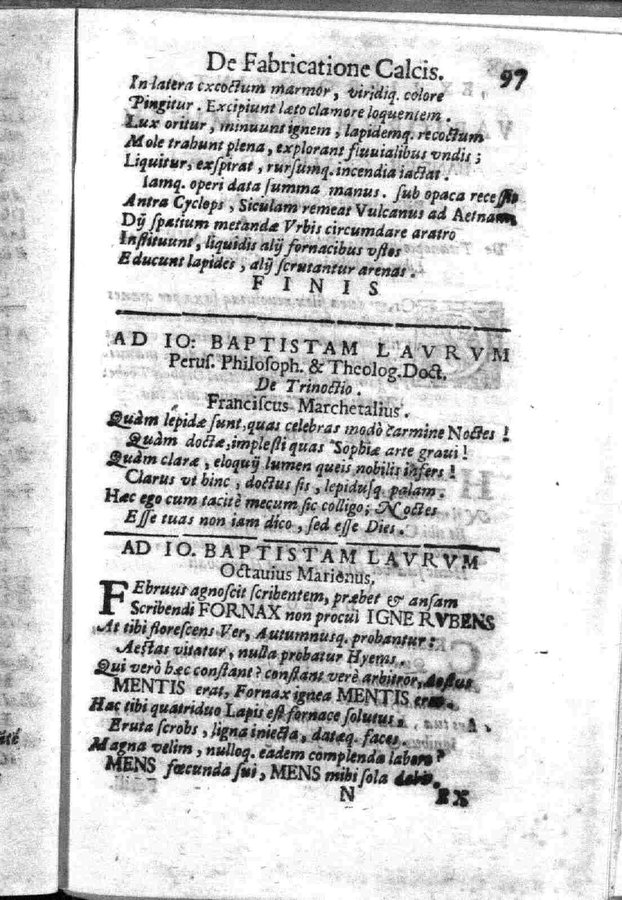 De Fabricatione Calcis. 97
In latera excoctum marmor, viridiq. colore
Pingitur. Excipiunt læto clamore loquentem.
Lux oritur, minuunt ignem, lapidemq. recoctum
Mole trahunt plena, explorant fluuialibus vndis;
Liquitur, exspirat, rursumq. incendia iactat.
Iamq. operi data summa manus. sub opaca recessit
Antra Cyclops, Siculam remeat Vulcanus ad Aetnam
Dij spatium metandæ Vrbis circumdare aratro
Instituunt, liquidis alij fornacibus vstos
Educunt lapides, alij scrutantur arenas.
FINIS
AD IO: BAPTISTAM LAVRVM
Perus. Philosoph. & Theolog. Doct.
De Trinoctio.
Franciscus Marchetalius.
Quàm lepidæ sunt, quas celebras modò carmine Noctes!
Quàm doctæ, implesti quas Sophiæ arte graui!
Quàm claræ, eloquij lumen queis nobilis infers!
Clarus vt hinc, doctus sis, lepidusq. palam.
Hæc ego cum tacitè mecum sic colligo; Noctes
Esse tuas non iam dico, sed esse Dies.
AD IO. BAPTISTAM LAVRVM
Octauius Marionus,
FEbruus agnoscit scribentem, præbet & ansam
Scribendi FORNAX non procul IGNE RVBENS
At tibi florescens Ver, Autumnusq. probantur:
Aestas vitatur, nulla probatur Hyems.
Qui verò hæc constant? constant verè arbitror, Aestus
MENTIS erat, Fornax ignea MENTIS erat.
Hac tibi quatriduo Lapis est fornace solutus
Eruta scrobs, ligna iniecta, datæq. faces.
Magna velim, nulloq. eadem complenda labore?
MENS fœcunda sui, MENS mihi sola
N EX